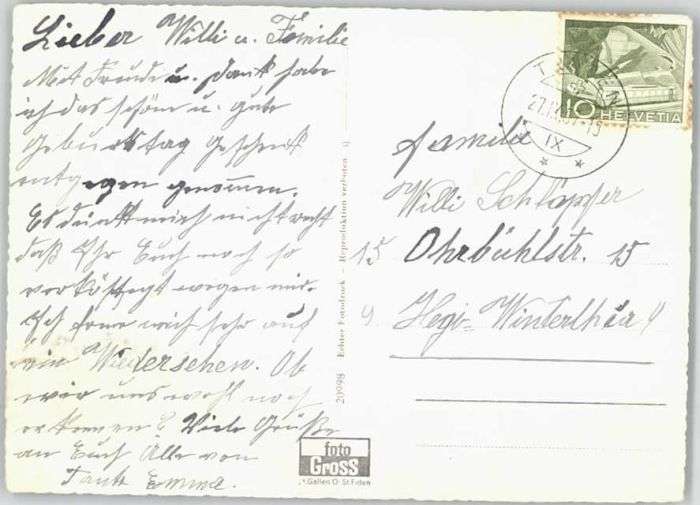 Lieber Willi u. Familie
Mit Freude u. Dank habe
ich das schöne u. gute
Geburtstag Geschenk
entgegen genommen.
Es dünkt mich nicht recht
daß Ihr Euch noch so
verköstigt wegen mir.
Ich freue mich sehr auf
ein Wiedersehen. Ob
wir uns wohl noch
erkennen? Viele Grüße
an Euch Alle von
Tante Emma.
20998 Echter Fotodruck — Reproduktion verboten
foto
Gross
St. Gallen O St Fiden
10 HELVETIA
IX
Familie
Willi Schläpfer
15 Ohrbühlstr. 15
Hegi-Winterthur